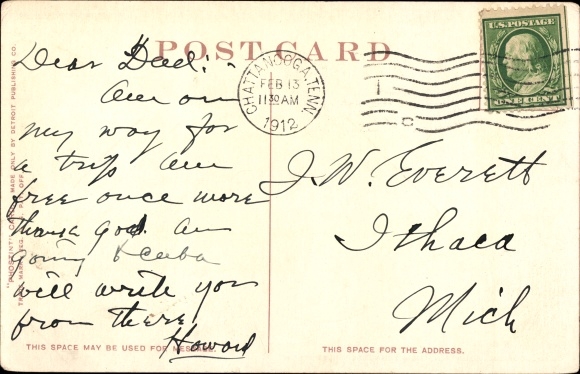 POST CARD
Dear Dad:-
Am on
my way for
a trip am
free once more
thank god. am
going to Cuba
will write you
from there.
Howard
THIS SPACE MAY BE USED FOR MESSAGE.
"PHOSTINT" CARD MADE ONLY BY DETROIT PUBLISHING CO.
CHATTANOOGA, TENN.
FEB 13
11 30 AM
1912
U.S. POSTAGE
ONE CENT
J. W. Everett
Ithaca
Mich
THIS SPACE FOR THE ADDRESS.